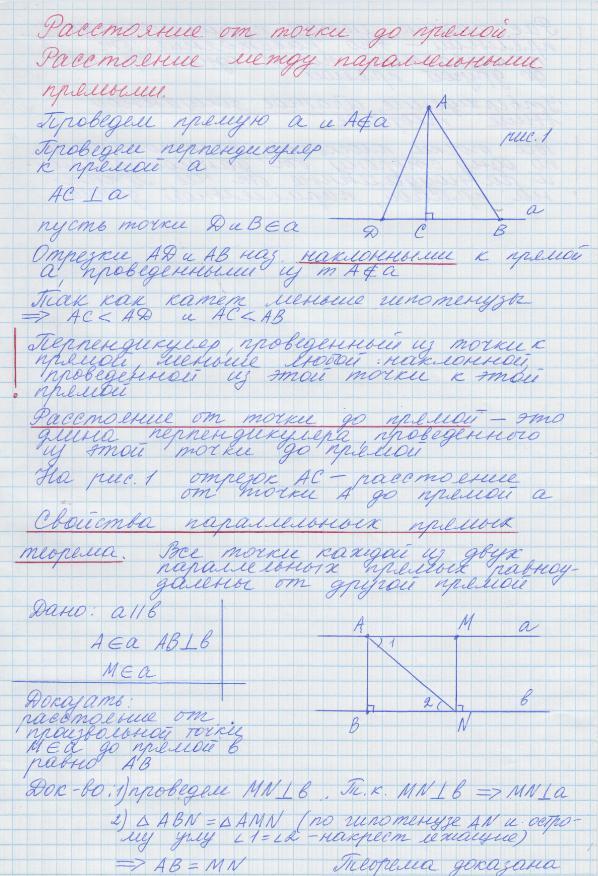 Расстояние от точки до прямой
Расстояние между параллельными
прямыми.
Проведем прямую a и A∉a
Проведем перпендикуляр
к прямой a
AC ⊥ a
пусть точки D и B ∈ a
A
рис.1
D
C
B
a
Отрезки AD и AB наз. наклонными к прямой
a, проведенными из т A∉a
Так как катет меньше гипотенузы
=> AC < AD и AC < AB
! Перпендикуляр, проведенный из точки к
прямой меньше любой наклонной,
проведенной из этой точки к этой
прямой
Расстояние от точки до прямой – это
длина перпендикуляра, проведенного
из этой точки до прямой
На рис.1 отрезок AC – расстояние
от точки A до прямой a
Свойства параллельных прямых
теорема. Все точки каждой из двух
параллельных прямых равноу-
далены от другой прямой
Дано: a∥b
A∈a AB⊥b
M∈a
Доказать:
расстояние от
произвольной точки
M∈a до прямой b
равно AB
A
M
a
1
2
b
B
N
Док-во: 1) проведем MN⊥b. Т.к. MN⊥b => MN⊥a
2) △ABN = △AMN (по гипотенузе AN и остро-
му углу ∠1=∠2 – накрест лежащие)
=> AB = MN Теорема доказана